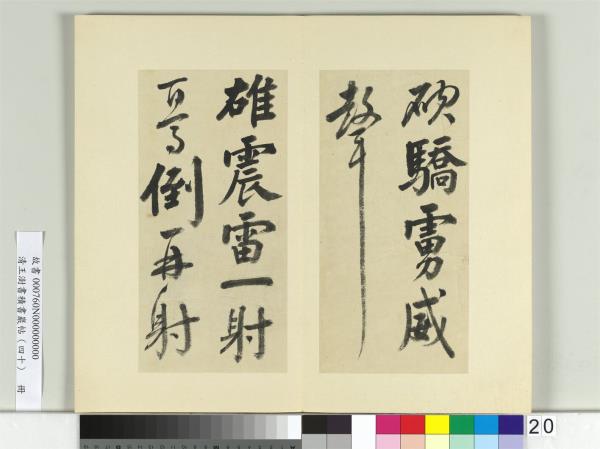 破驕虜威
聲
雄震雷一射
百馬倒再射
故書000760N000000000
清王澍書積書巖帖(四十) 冊
20